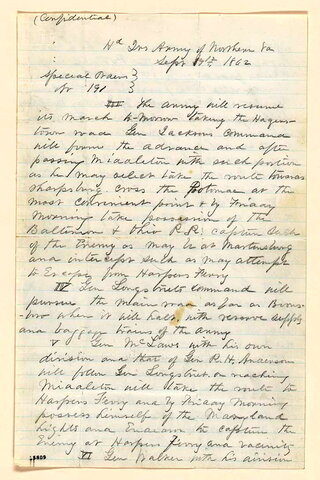 (Confidential)
Hd Qrs Army of Northern Va
Sept 9th 1862
Special Orders }
No 191 }
III The Army will resume
its march to-morrow taking the Hagers-
town road. Gen Jacksons Command
will form the advance and after
passing Middleton with such portion
as he may select take the route towards
Sharpsburg cross the Potomac at the
most convenient point & by Friday
Morning take possession of the
Baltimore & Ohio R.R. capture such
of the Enemy as may be at Martinsburg
and intercept such as may attempt
to Escape from Harpers Ferry
IV Gen Longstreets command will
pursue the main road as far as Boons-
boro where it will halt, with reserve supply
and baggage trains of the army
V Gen McLaws with his own
division and that of Gen R. H. Anderson
will follow Gen Longstreet on reaching
Middleton will take the route to
Harpers Ferry and by Friday Morning
possess himself of the Maryland
hights and Endeavor to capture the
Enemy at Harpers Ferry and vacinity
VI Gen Walker with his division